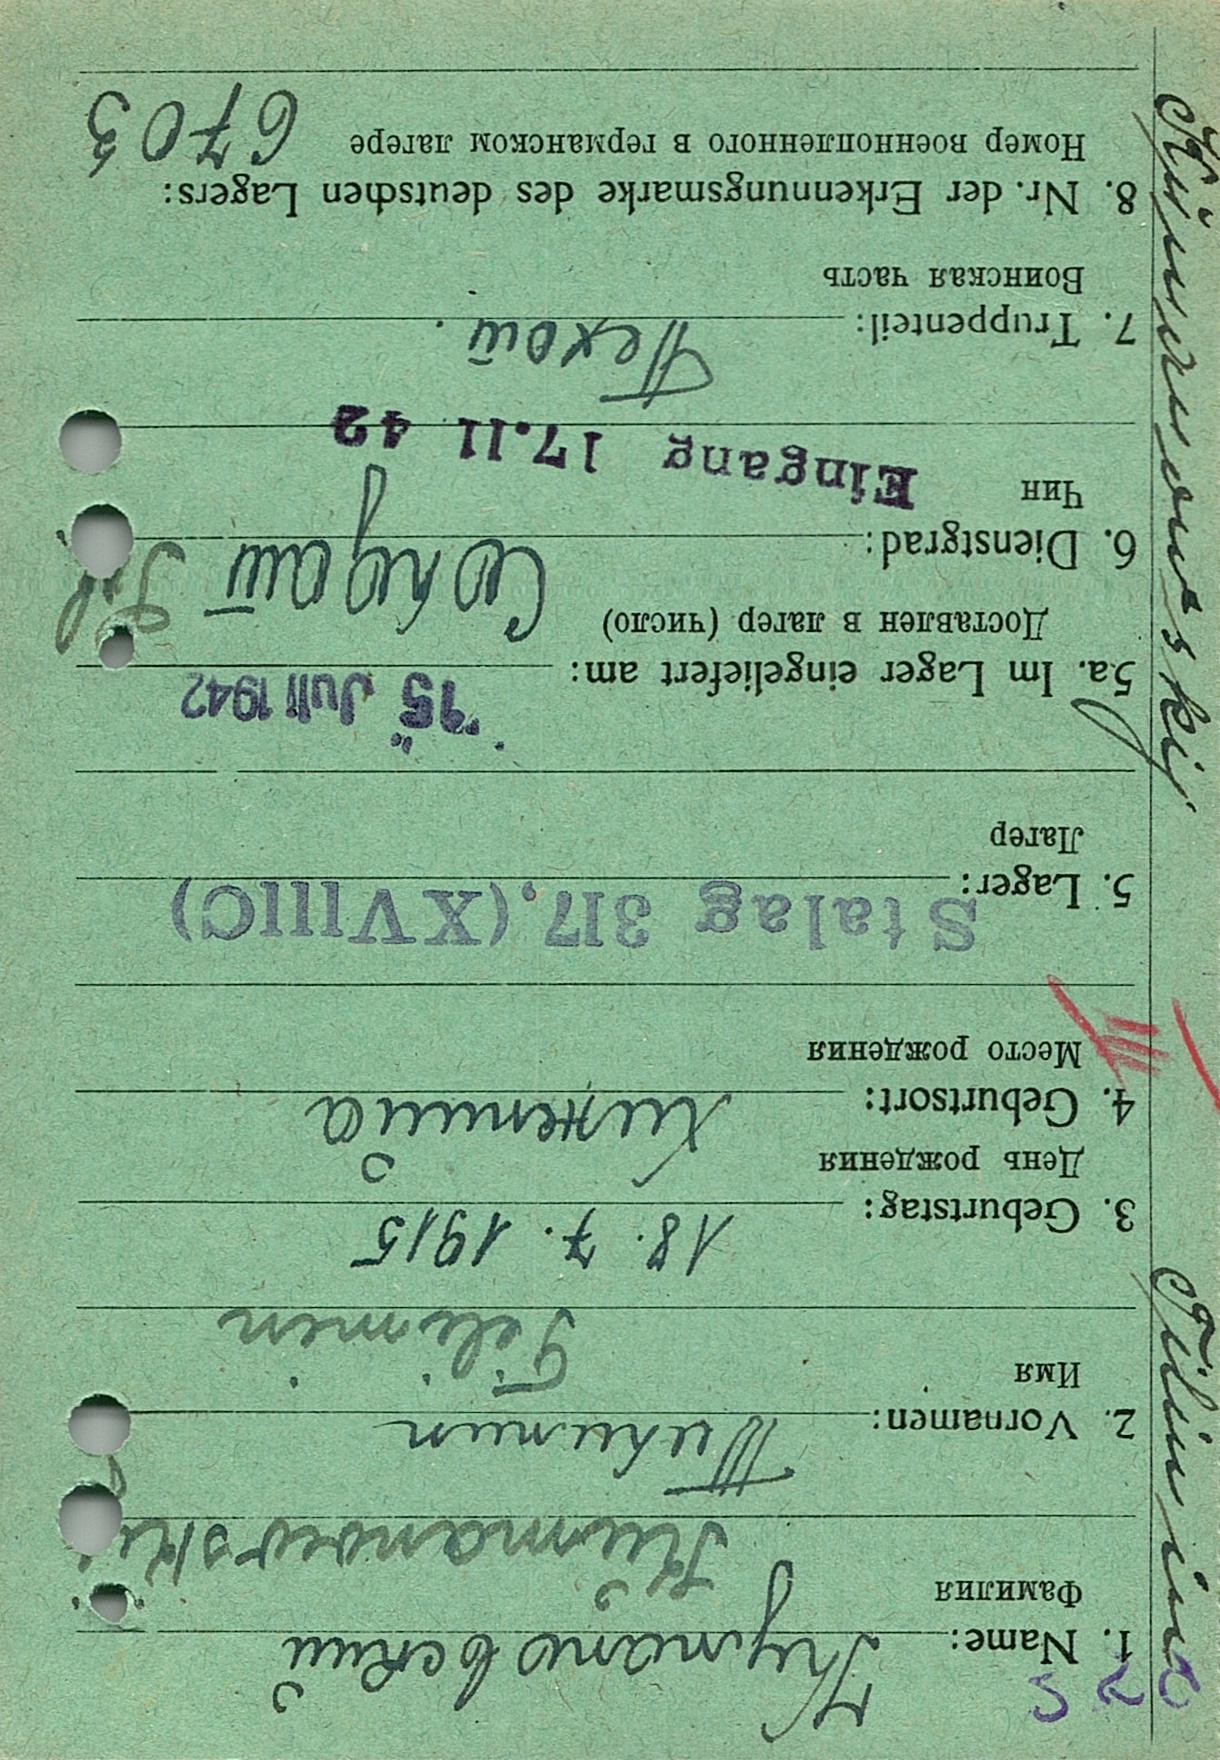 1. Name: Кумановский
Фамилия Kumanowskij
2. Vornamen: Филимин
Имя Filimin
3. Geburtstag: 18. 7. 1915
День рождения
4. Geburtsort:
Место рождения
5. Lager: Stalag 317, (XVIIIC)
Лагер
5a. Im Lager eingeliefert am: 15 Juli 1942
Доставлен в лагер (число)
6. Dienstgrad: Солдат
Чин Eingang 17.11 42
7. Truppenteil: Пехот.
Воинская часть
8. Nr. der Erkennungsmarke des deutschen Lagers:
Номер военнопленного в германском лагере 6703